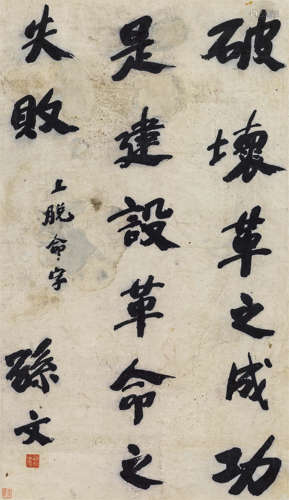 破壞革之成功
是建設革命之
失敗
上脱命字
孫文